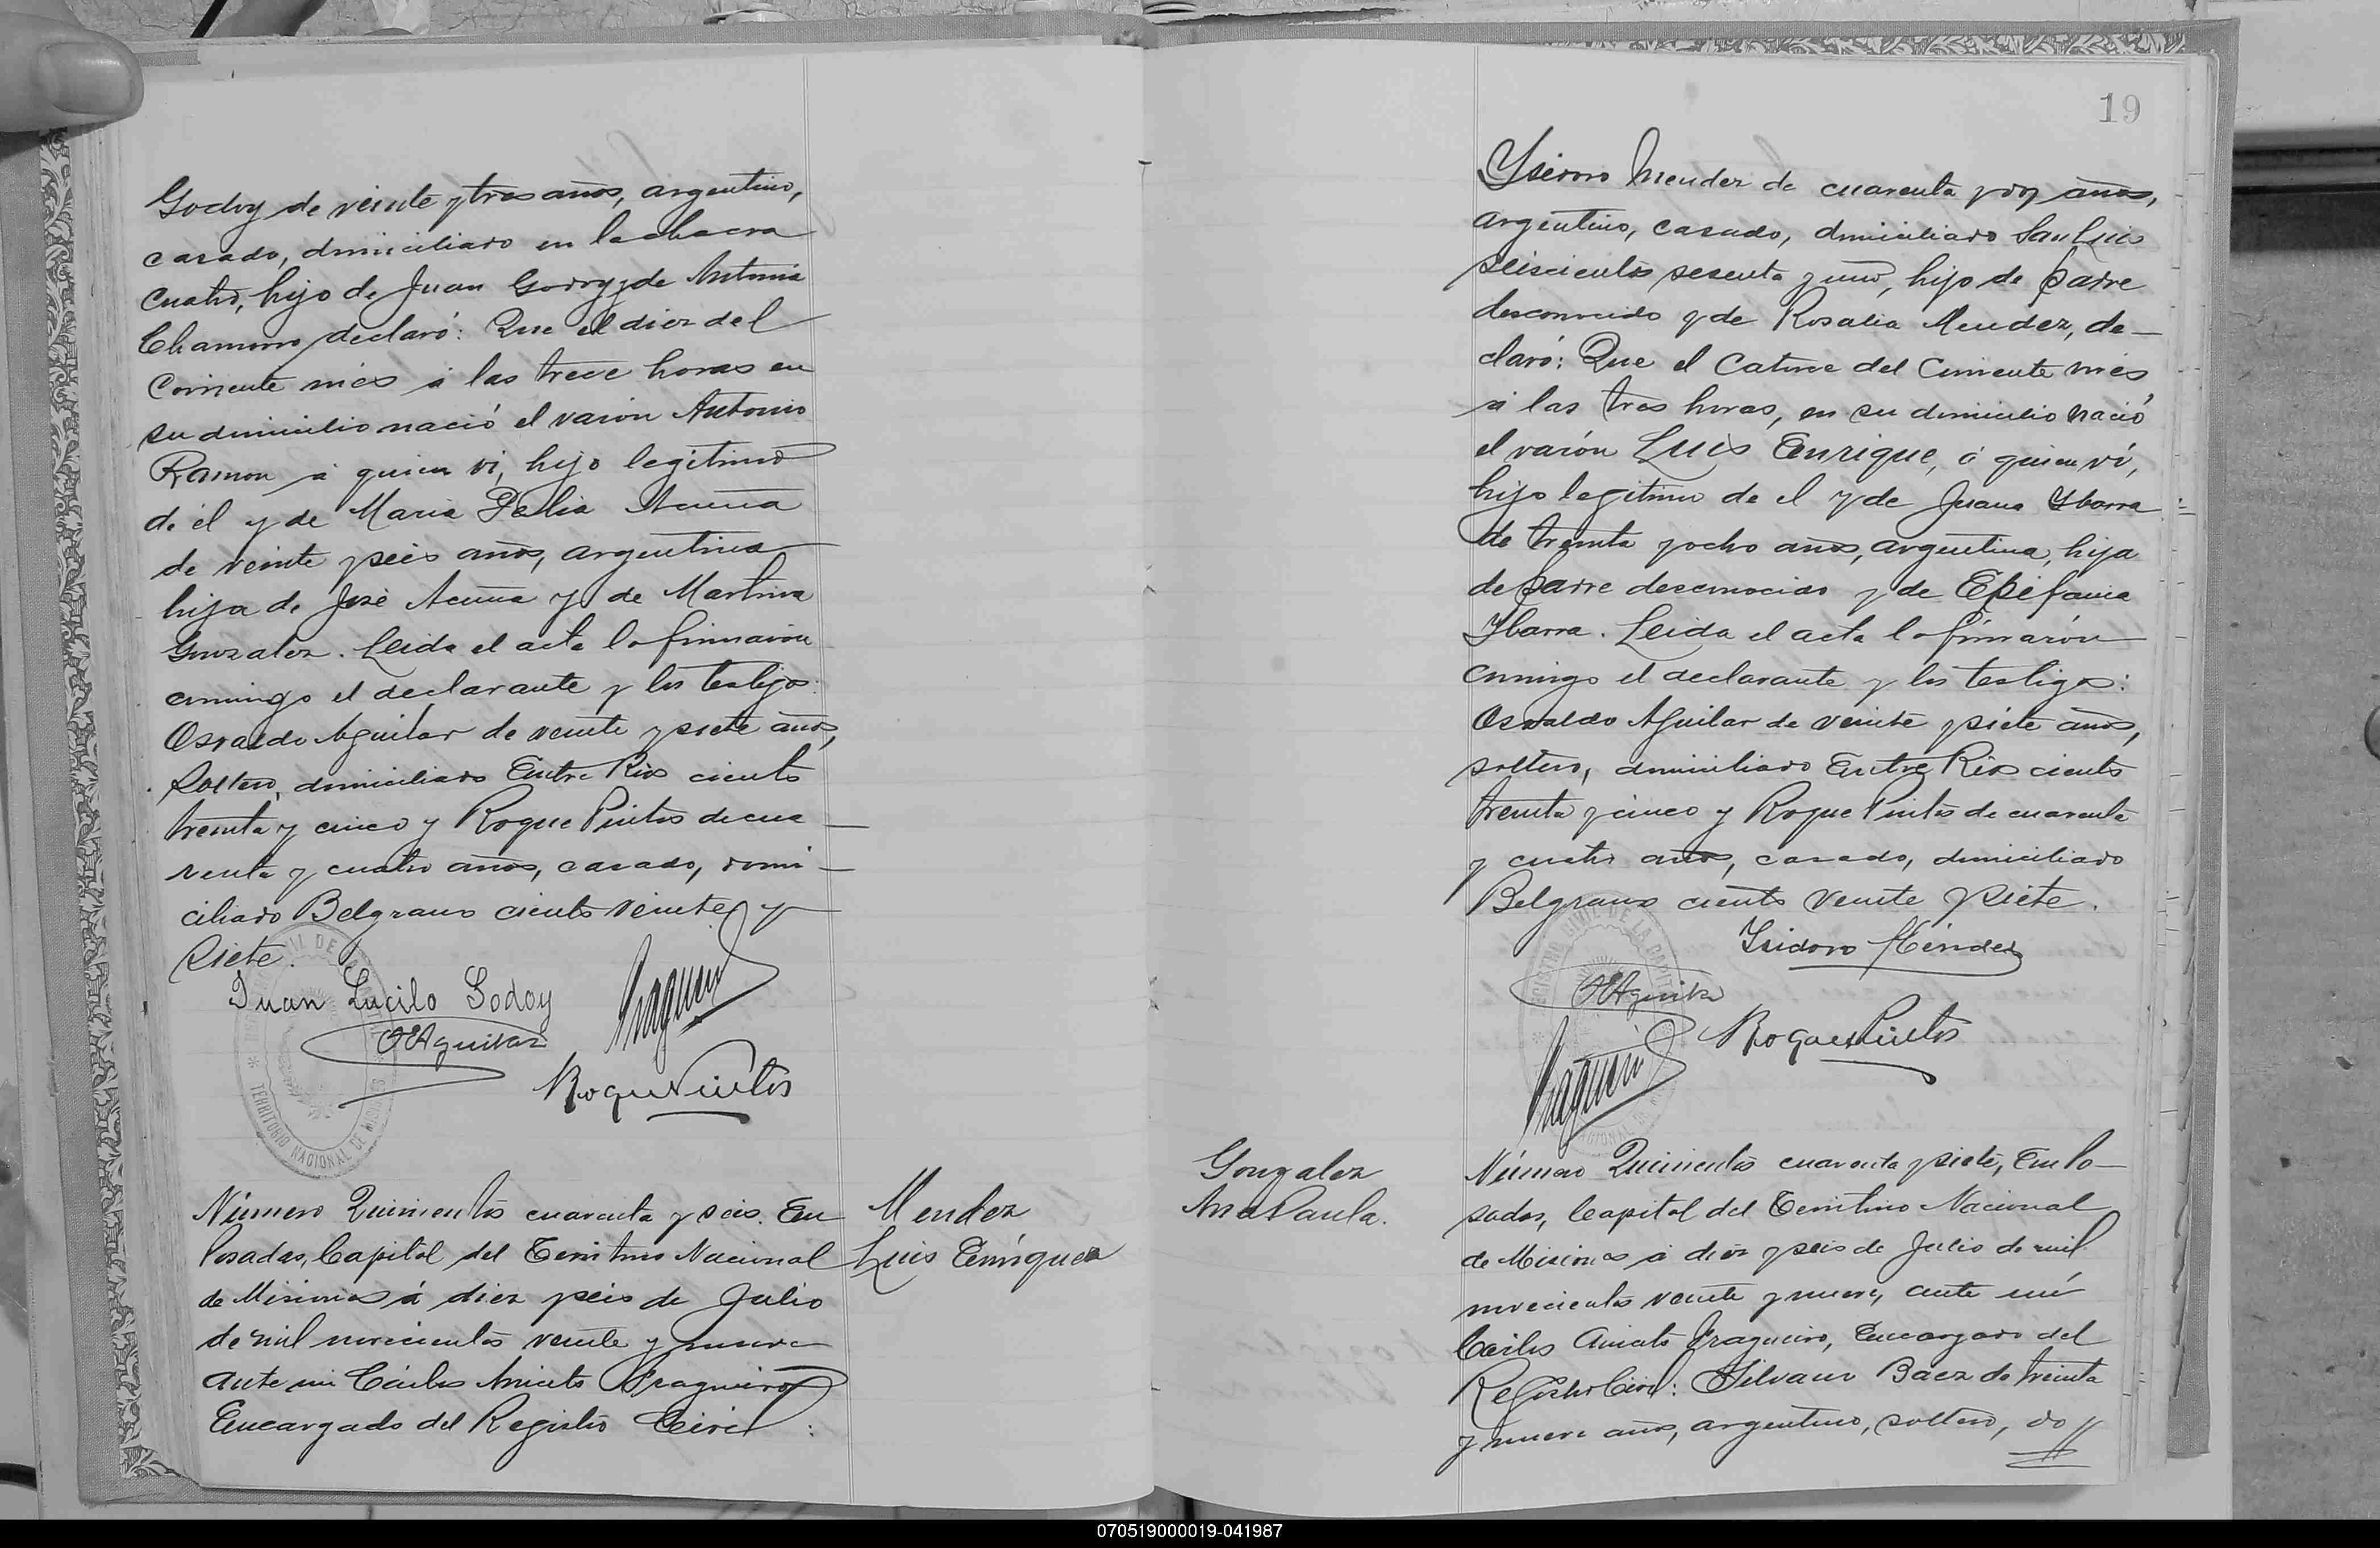 Godoy de veinte y tres años, argentino,
casado, domiciliado en la chacra
cuatro, hijo de Juan Godoy y de Antonia
Chamorro declaró: Que el diez del
corriente més á las trece horas en
su domicilio nació el varón Antonio
Ramon á quien ví, hijo legítimo
de él y de Maria Delia Acuña
de veinte y seis años, argentina
hija de José Acuña y de Martina
Gonzalez. Leida el acta la firmaron
conmigo el declarante y los testigos:
Osvaldo Aguilar de veinte y siete años,
soltero, domiciliado Entre Rios ciento
treinta y cinco y Roque Pintos de cua
renta y cuatro años, casado, domi-
ciliado Belgrano ciento veinte y
siete.
Juan Lucilo Godoy
OEAguilar
Roque Pintos
TERRITORIO NACIONAL DE MISIONES
Número Quinientos cuarenta y seis. En
Posadas, Capital del Territorio Nacional
de Misiones á diez y seis de Julio
de mil novecientos veinte y nueve
ante mi Cárlos Aniceto Fragueiro
Encargado del Registro Civil:
Mendez
Luis Enrique
19
Ysidoro Mendez de cuarenta y dos años,
argentino, casado, domiciliado San Luis
seiscientos sesenta y uno, hijo de padre
desconocido y de Rosalia Mendez, de-
claró: Que el catorce del corriente més
á las tres horas, en su domicilio nació
el varón Luis Enrique, á quien ví,
hijo legítimo de el y de Juana Ybarra
de treinta y ocho años, argentina, hija
de padre desconocido y de Epifania
Ybarra. Leida el acta la firmarón
conmigo el declarante y los testigos:
Osvaldo Aguilar de veinte y siete años,
soltero, domiciliado Entre Rios ciento
treinta y cinco y Roque Pintos de cuarenta
y cuatro años, casado, domiciliado
Belgrano ciento veinte y siete.
Isidoro Méndez
OEAguilar
Roque Pintos
Gonzalez
Ana Paula.
Número Quinientos cuarenta y siete, En Po-
sadas, Capital del Territorio Nacional
de Misiones á diez y seis de Julio de mil
novecientos veinte y nueve, ante mí
Carlos Aniceto Fragueiro, Encargado del
Registro Civil: Silvano Baez de treinta
y nueve años, argentino, soltero, do //
070519000019-041987